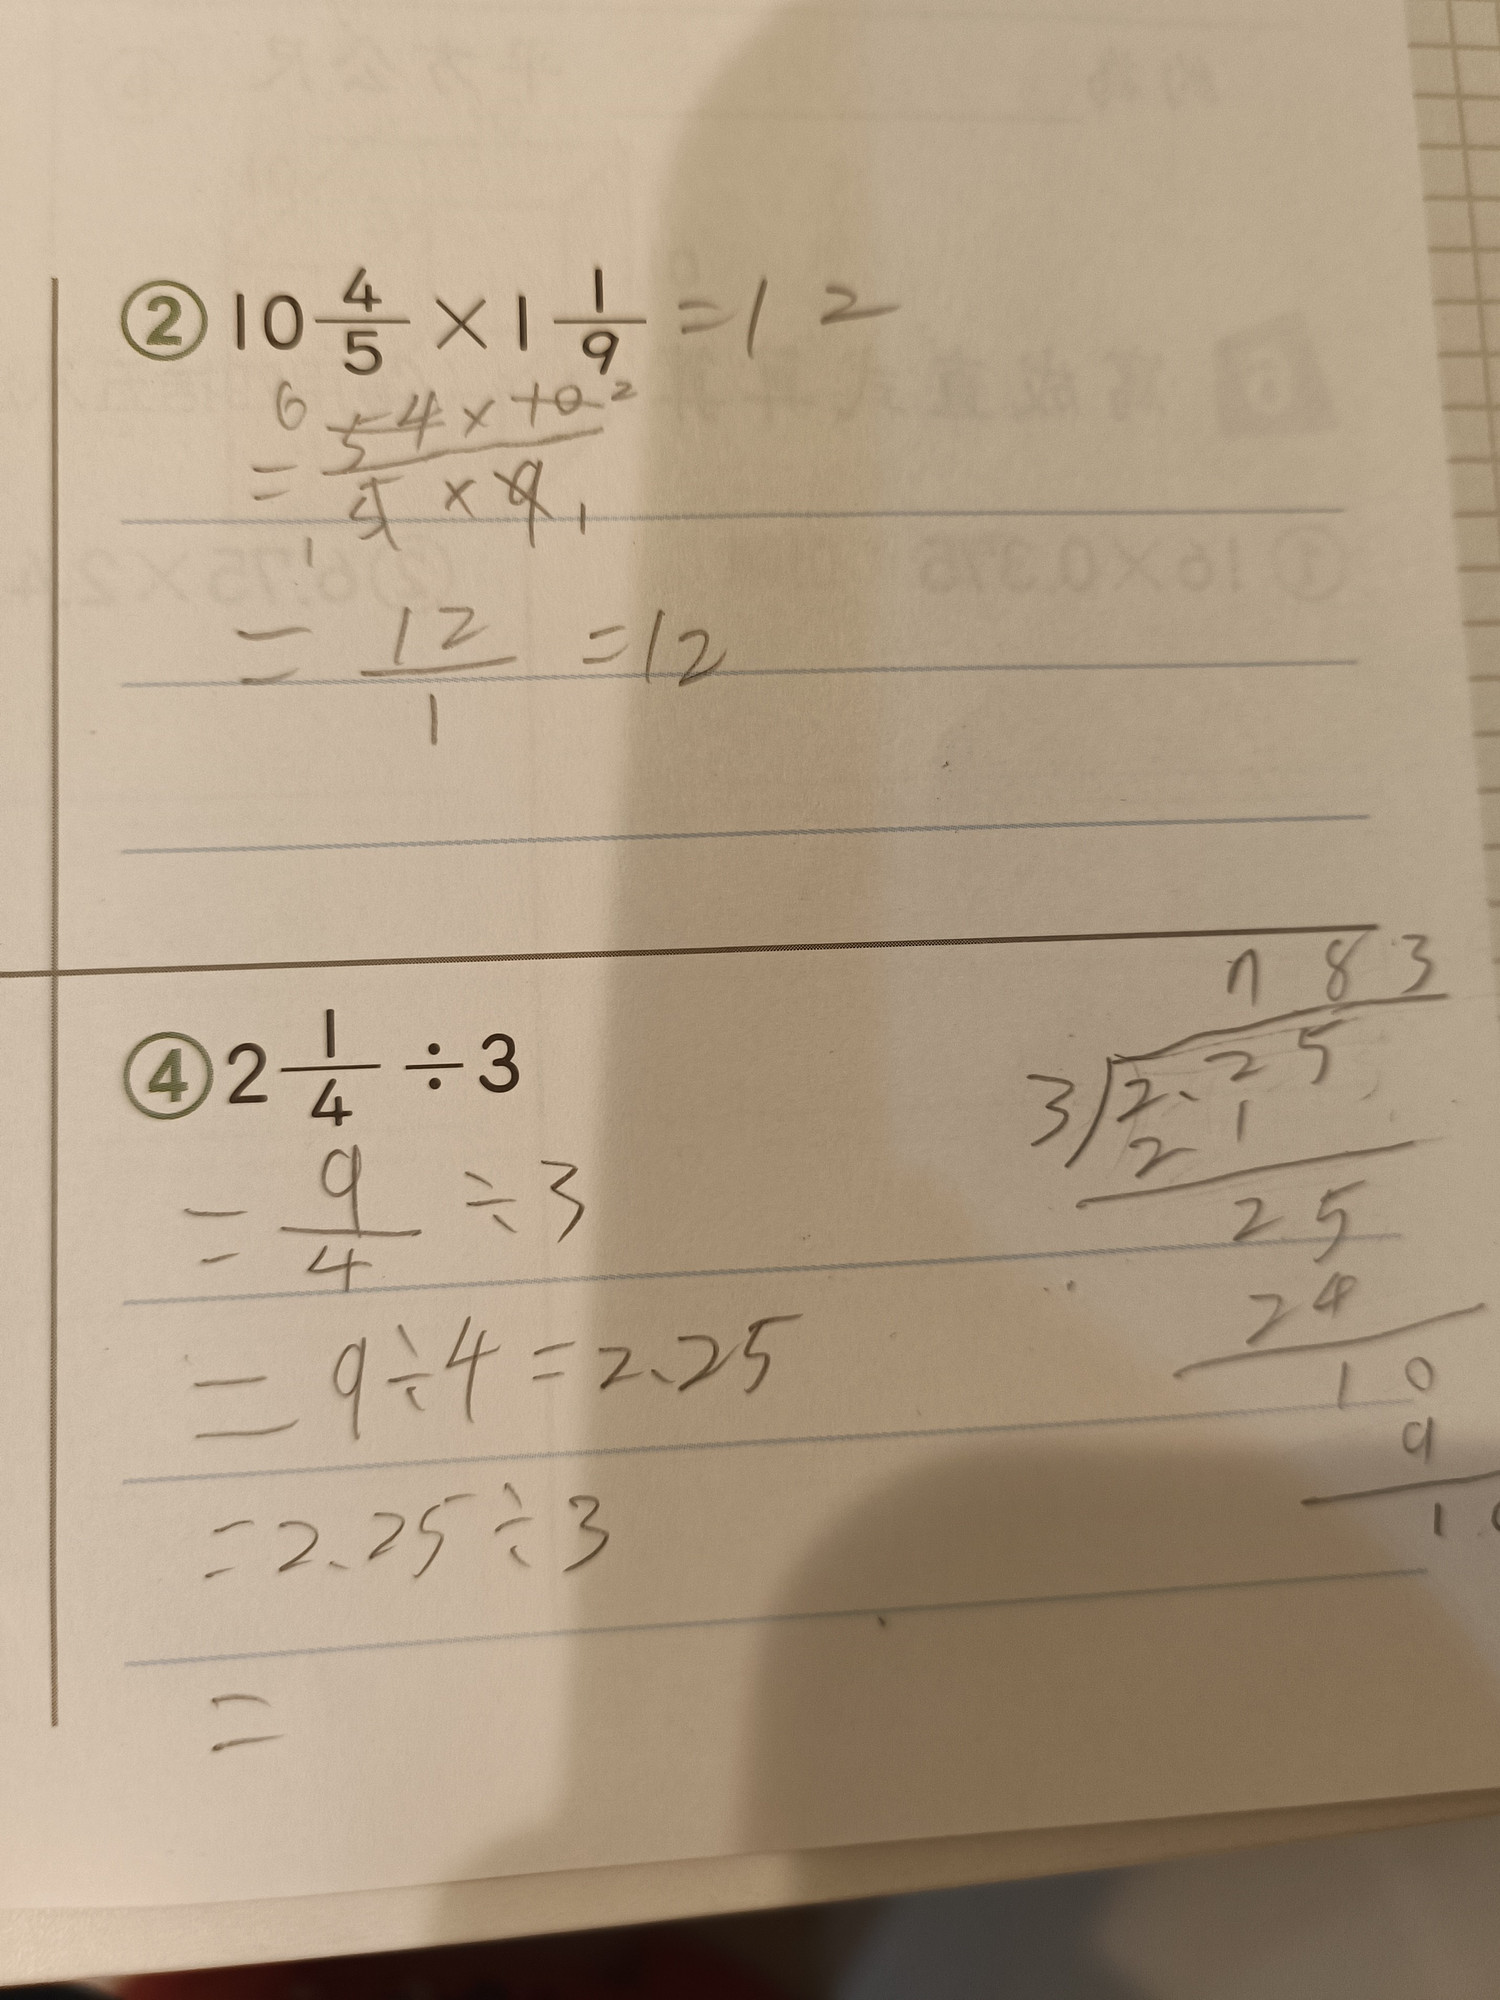 ② 10 4/5 × 1 1/9 = 12
6 2
= 54 × 10 / 5 × 9
1 1
= 12/1 = 12
④ 2 1/4 ÷ 3
= 9/4 ÷ 3
= 9 ÷ 4 = 2.25
= 2.25 ÷ 3
=
7 8 3
3 2.25
2 1
2 5
2 4
1 0
9
1